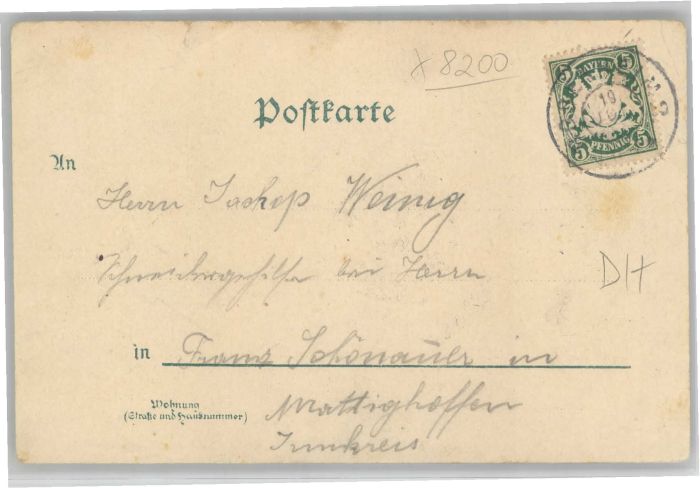 * 8200
5 BAYERN 5
5 PFENNIG 5
19
Postkarte
An
Herrn Jackop Weinig
Schneidergehilfe bei Herrn
DIH
in Franz Schönauer in
Wohnung
(Straße und Hausnummer)
Mattighoffen
Innkreis